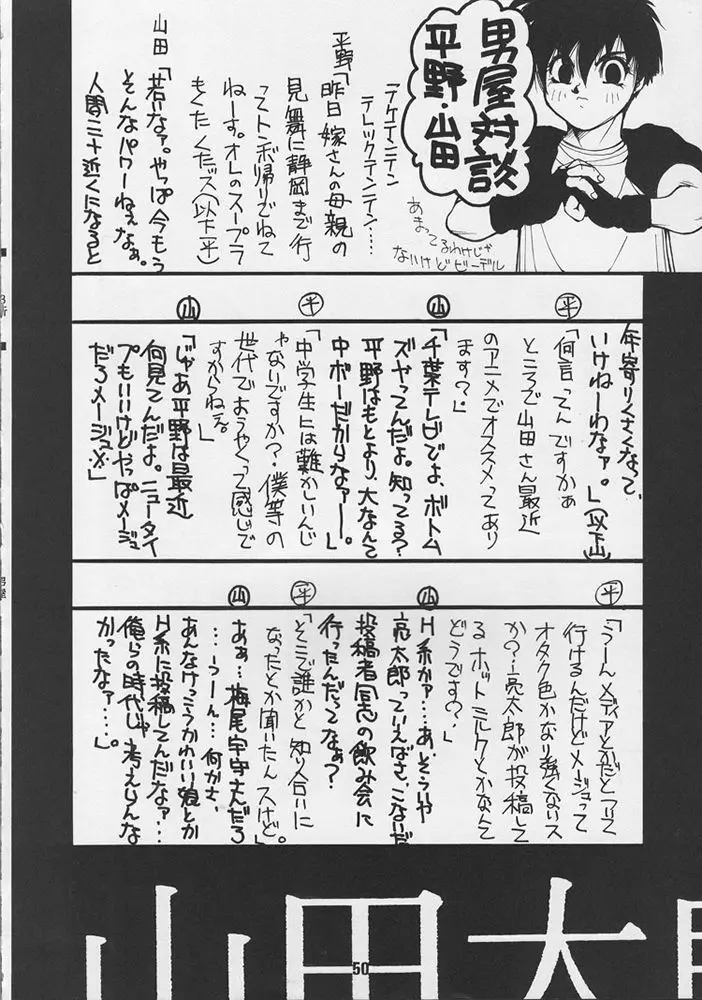 男屋対談
平野・山田
テケテンテテン
テレックテンテン…
平野「昨日嫁さんの母親の
見舞に静岡まで行
ってトンボ帰りでねて
ねーす。オレのスープラ
もくたくたッス(以下平)
山田「若いなァ。やっぱ今もう
そんなパワーねェなぁ。
人間三十近くになると
あまってるわけじゃ
ないけどビーデル
年寄りくさくなって、
いけねーわなァ。」(以下山)
平
「何言ってんですかぁ
ところで山田さん最近
のアニメでオススメってあり
ます?」
山
「千葉テレビでよ、ボトム
ズやってんだよ。知ってる?
平野はもとより、大なんて
中ボーだからなァー。」
平
「中学生には難かしいんじ
ゃないですか?僕等の
世代でようやくって感じで
すからねぇ。」
山
「じゃあ平野は最近
何見てんだよ。ニュータイ
プもいいけどやっぱメージュ
だろメージュ。」
平
「うーんメディアとかだとついて
行けるんだけどメージュって
オタク色かなり強くないス
か?…亮太郎が投稿して
るホットミルクとかなんて
どうです?」
山
H系かァ…あ、そういや
亮太郎っていえばさ、こないだ
投稿者同志の飲み会に
行ったんだってなぁ?
平
「そこで誰かと知り合いに
なったとか聞いたんスけど。」
山
あぁ…梅尾宇守さんだろ
…うーん…何かさ、
あんなけっこうかわいい娘とか
H系に投稿してんだなァ…
俺らの時代じゃ考えらんな
かったなァ…。」
山田太
50